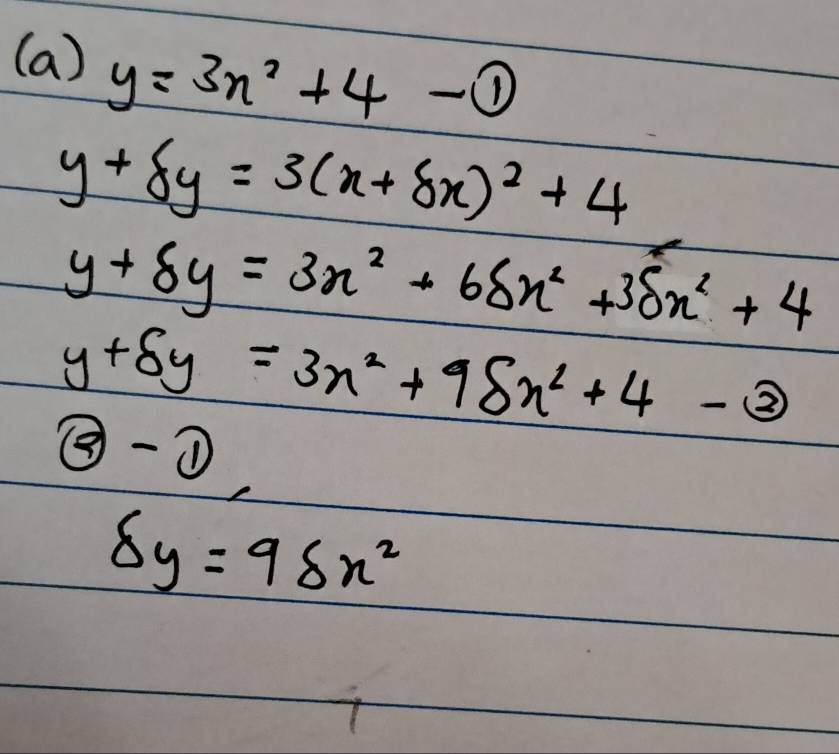 (a) y = 3x² + 4 - ①
y + δy = 3(x + δx)² + 4
y + δy = 3x² + 6δx² + 3δx² + 4
y + δy = 3x² + 9δx² + 4 - ②
② - ①,
δy = 9δx²